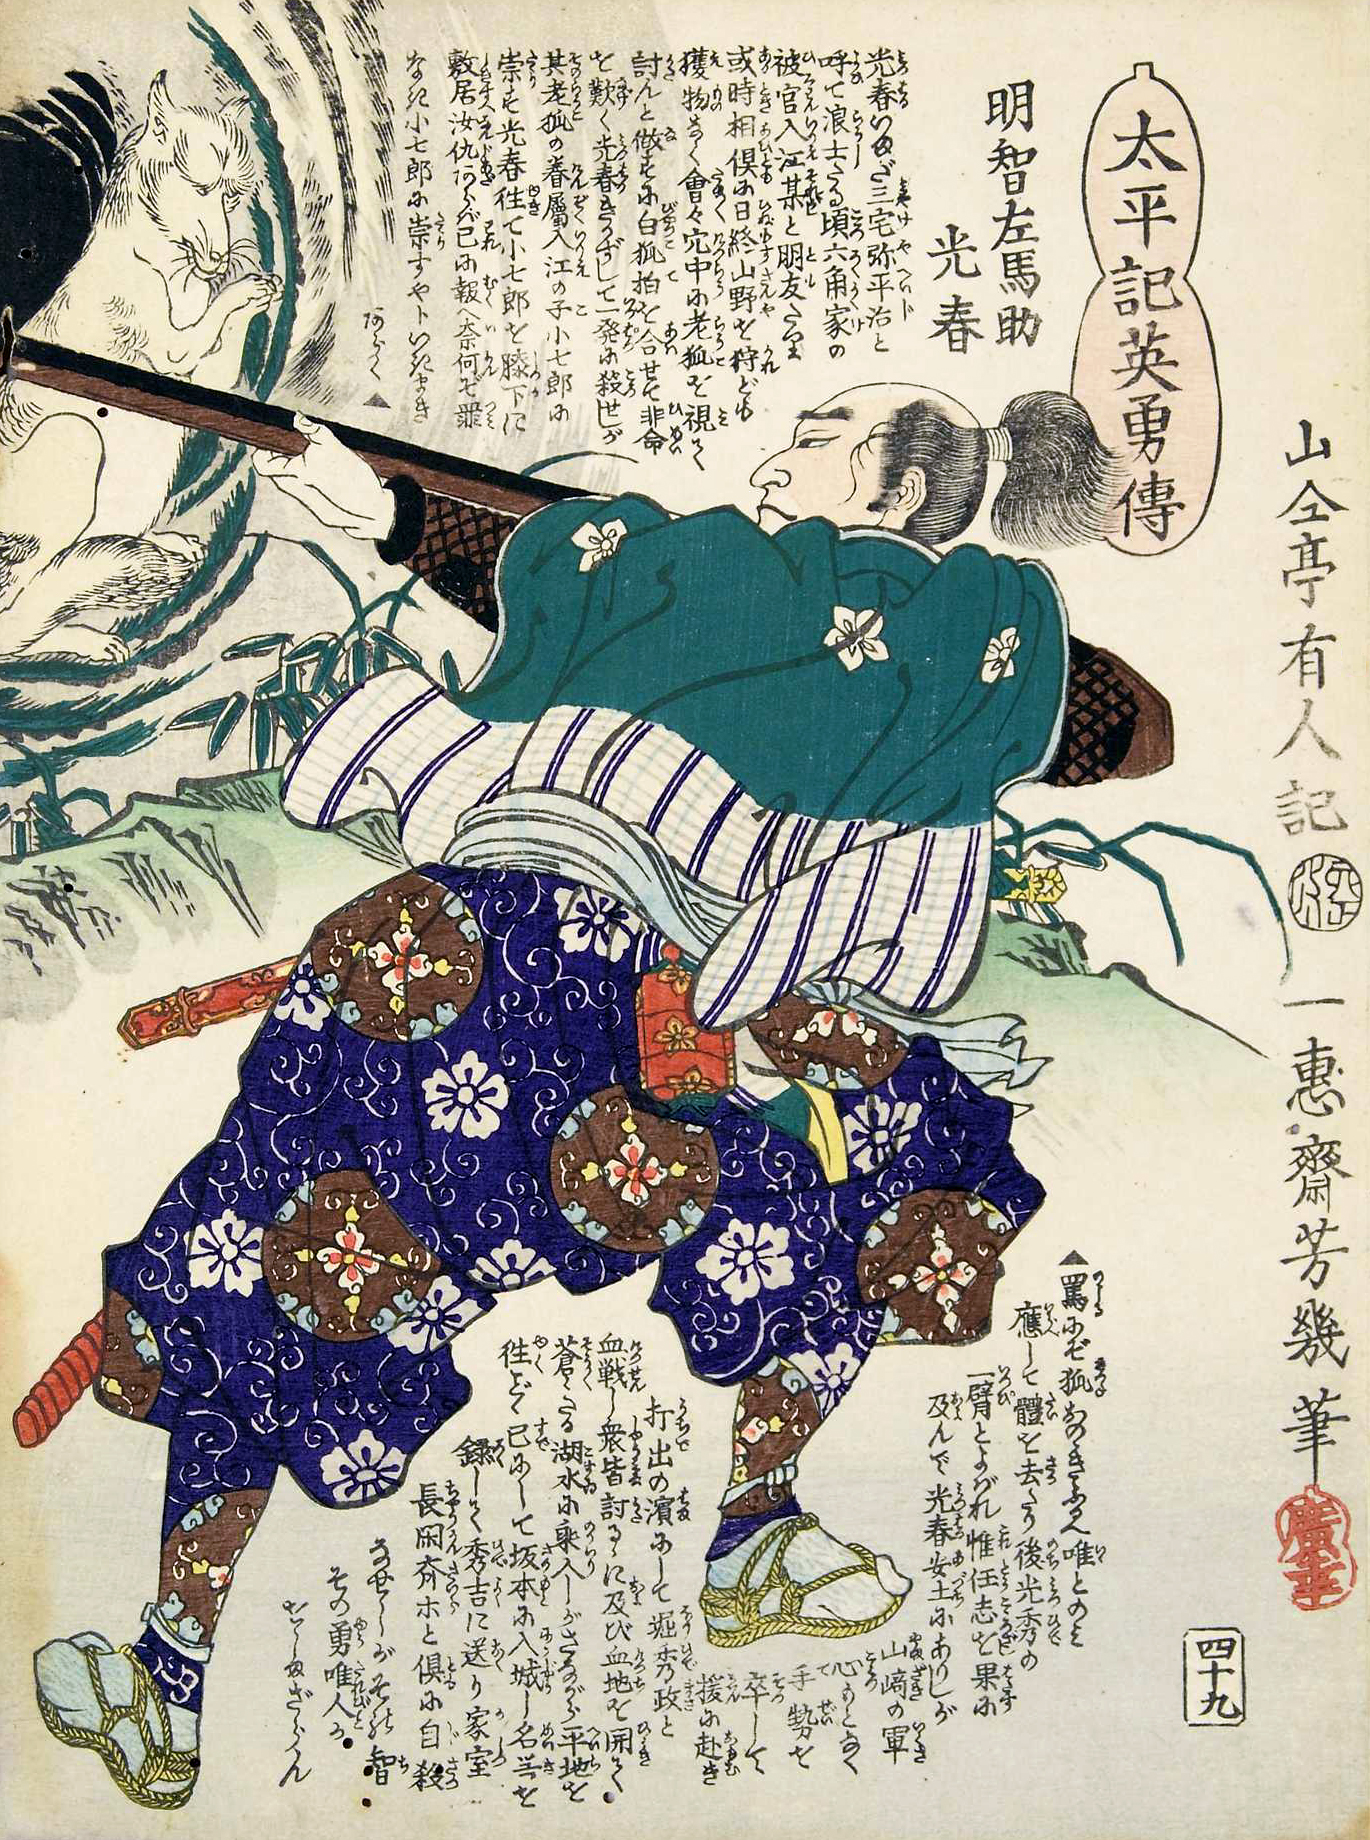 太平記英勇傳
明智左馬助
光春
光春いまだ三宅弥平治と
呼て浪士たる頃六角家の
被官入江某と朋友たりき
或時相倶に日終山野を狩ども
獲物なく會々穴中に老狐を視て
討んと做すに白狐拍を合せて非命
を歎く光春きかずして一発に殺せしが
其老狐の眷属入江の子小七郎に
崇をす光春往て小七郎を膝下に
敷居汝仇あらば已に報へ奈何ぞ罪
なき小七郎に崇すやトいきまき
あらく▲
▲罵にぞ狐 唯とのミ
應して體を去たり後光秀の
一臂とよばれ惟任志を果に
及んで光春安土にありしが
山﨑の軍
心もとなく
手勢を
卒して
援に赴き
打出の濱にして堀秀政と
血戦し衆皆討るゝに及び血地を開て
蒼々たる湖水に乗入しがさながら平地を
往ごく已にして坂本に入城し名器を
録して秀吉に送り家室
長閑斉ホと倶に自殺
なせしがその智
その勇唯人
山仝亭有人記
一惠齋芳幾筆
四十九